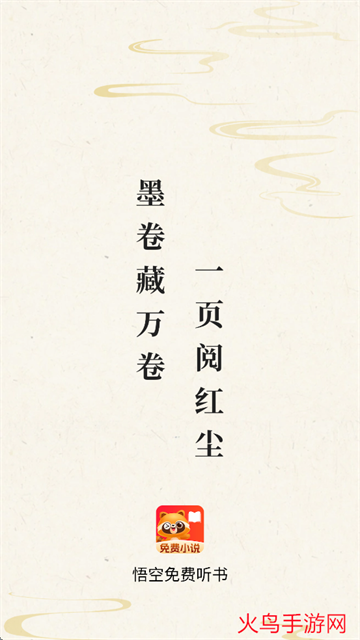 墨卷藏万卷
一页阅红尘
免费小说
悟空免费听书
火鸟手游网